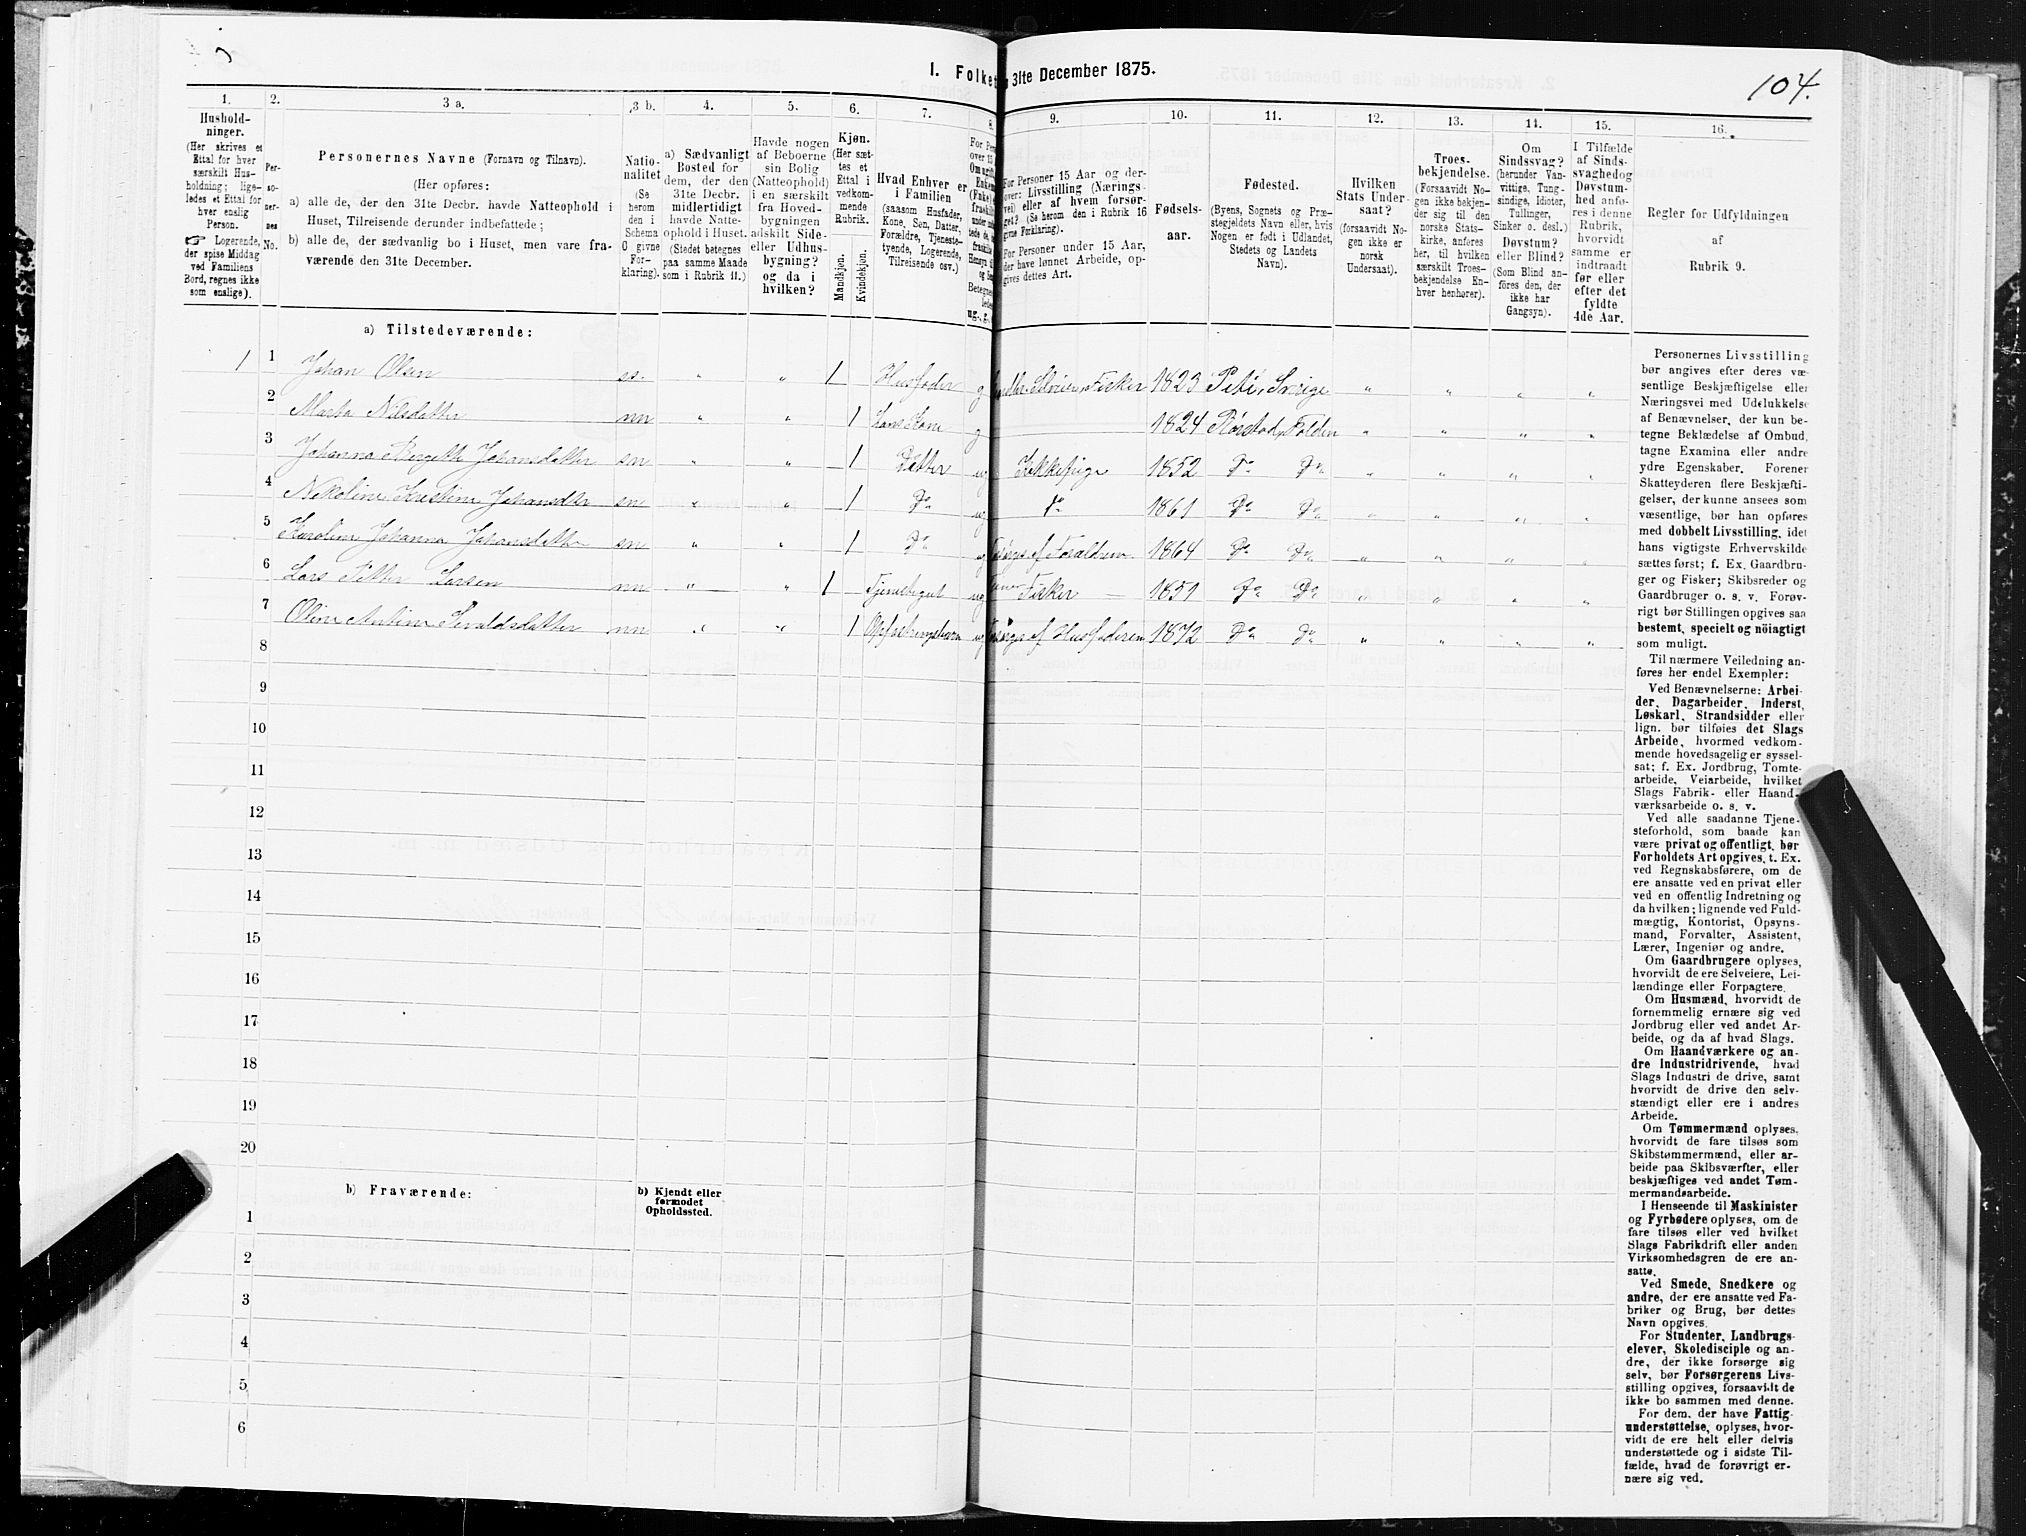 104.
1. Folket
31te December 1875.
1. 2. 3 a. 3 b. 4. 5. 6. 7. 8. 9. 10. 11. 12. 13. 14. 15. 16.
Hushold-
ninger.
(Her skrives et
Ettal for hver
særskilt Hus-
holdning; lige-
ledes et Ettal for
hver enslig
Person.
☞ Logerende,
der spise Middag
ved Familiens
Bord, regnes ikke
som enslige).
Per-
so-
ner-
nes
No.
Personernes Navne (Fornavn og Tilnavn).
(Her opføres:
a) alle de, der den 31te Decbr. havde Natteophold i
Huset, Tilreisende derunder indbefattede;
b) alle de, der sædvanlig bo i Huset, men vare fra-
værende den 31te December.
Natio-
nalitet
(Se
herom
den i
Schema
O givne
For-
klaring).
a) Sædvanligt
Bosted for
dem, der den
31te Decbr.
midlertidigt
havde Natte-
ophold i Huset.
(Stedet betegnes
paa samme Maade
som i Rubrik 11.)
Havde nogen
af Beboerne
sin Bolig
(Natteophold)
i en særskilt
fra Hoved-
bygningen
adskilt Side-
eller Udhus-
bygning?
og da i
hvilken?
Kjøn.
(Her sæt-
tes et
Ettal i
vedkom-
mende
Rubrik.
Mandkjøn.
Kvindekjøn.
Hvad Enhver er
i Familien
(saasom Husfader,
Kone, Søn, Datter,
Forældre, Tjeneste-
tyende, Logerende,
Tilreisende osv.)
For Personer 15 Aar og der-
over: Livsstilling (Nærings-
vei) eller af hvem forsør-
get? (Se herom den i Rubrik 16
givne Forklaring).
For Personer under 15 Aar,
der have lønnet Arbeide, op-
gives dettes Art.
Fødsels-
aar.
Fødested.
(Byens, Sognets og Præ-
stegjeldets Navn eller, hvis
Nogen er født i Udlandet,
Stedets og Landets
Navn).
Hvilken
Stats Under-
saat?
(forsaavidt No-
gen ikke er
norsk
Undersaat).
Troes-
bekjendelse.
(Forsaavidt No-
gen ikke bekjen-
der sig til den
norske Stats-
kirke, anføres
her, til hvilken
særskilt Troes-
bekjendelse En-
hver henhører).
Om
Sindssvag?
(herunder Van-
vittige, Tung-
sindige, Idioter,
Tullinger,
Sinker o. desl.)
Døvstum?
eller Blind?
(Som Blind an-
føres den, der
ikke har
Gangsyn).
I Tilfælde
af Sinds-
svaghed og
Døvstum-
hed anfø-
res i denne
Rubrik,
hvorvidt
samme er
indtraadt
før eller
efter det
fyldte
4de Aar.
Regler for Udfyldningen
af
Rubrik 9.
a) Tilstedeværende:
1 1 Johan Olsen ss. „ „ 1 Husfader g Fisker 1823 Sverige „ „ „ „
2 Marta Nilsdatter nn „ „ 1 hans Kone g 1824 Rørstad Folden „ „ „ „
3 Johanna Bergethe Johansdatter sn „ „ 1 Datter ug Kokkepige 1852 Do Do „ „ „ „
4 Nikoline Kristine Johansdtr sn „ „ 1 Do ug do 1861 Do Do „ „ „ „
5 Karoline Johanna Johansdatter sn „ „ 1 Do af Forældrene 1864 Do Do „ „ „ „
6 Lars Petter Larsen nn „ „ 1 ug Fisker 1851 Do Do „ „ „ „
7 Oline Sivaldsdatter nn „ „ 1 Opfostringsbarn ug af Husfaderen 1872 Do Do „ „ „ „
8
9
10
11
12
13
14
15
16
17
18
19
20
b) Fraværende:
b) Kjendt eller
formodet
Opholdssted.
1
2
3
4
5
6
Personernes Livsstilling
bør angives efter deres væ-
sentlige Beskjæftigelse eller
Næringsvei med Udelukkelse
af Benævnelser, der kun be-
tegne Beklædelse af Ombud,
tagne Examina eller andre
ydre Egenskaber. Forener
Skatteyderen flere Beskjæfti-
gelser, der kunne ansees som
væsentlige, bør han opføres
med dobbelt Livsstilling, idet
hans vigtigste Erhvervskilde
sættes først; f. Ex. Gaardbru-
ger og Fisker; Skibsreder og
Gaardbruger o. s. v. Forøv-
rigt bør Stillingen opgives saa
bestemt, specielt og nøiagtigt
som muligt.
Til nærmere Veiledning an-
føres her endel Exempler:
Ved Benævnelserne: Arbei-
der, Dagarbeider, Inderst,
Løskarl, Strandsidder eller
lign. bør tilføies det Slags
Arbeide, hvormed vedkom-
mende hovedsagelig er syssel-
sat; f. Ex. Jordbrug, Tomte-
arbeide, Veiarbeide, hvilket
Slags Fabrik- eller Haand-
værksarbeide o. s. v.
Ved alle saadanne Tjene-
steforhold, som baade kan
være privat og offentligt, bør
Forholdets Art opgives, t. Ex.
ved Regnskabsførere, om de
ere ansatte ved en privat eller
ved en offentlig Indretning og
da hvilken; lignende ved Fuld-
mægtig, Kontorist, Opsyns-
mand, Forvalter, Assistent,
Lærer, Ingeniør og andre.
Om Gaardbrugere oplyses,
hvorvidt de ere Selveiere, Lei-
lændinge eller Forpagtere.
Om Husmænd, hvorvidt de
fornemmelig ernære sig ved
Jordbrug eller ved andet Ar-
beide, og da af hvad Slags.
Om Haandværkere og an-
dre Industridrivende, hvad
Slags Industri de drive, samt
hvorvidt de drive den selv-
stændigt eller ere i andres
Arbeide.
Om Tømmermænd oplyses,
hvorvidt de fare tilsøs som
Skibstømmermænd, eller ar-
beide paa Skibsværfter, eller
beskjæftiges ved andet Tøm-
mermandsarbeide.
I Henseende til Maskinister
og Fyrbødere oplyses, om de
fare tilsøs eller ved hvilket
Slags Fabrikdrift eller anden
Virksomhedsgren de ere an-
satte.
Ved Smede, Snedkere og
andre, der ere ansatte ved Fa-
briker og Brug, bør dettes
Navn opgives.
For Studenter, Landbrugs-
elever, Skoledisciple og an-
dre, der ikke forsørge sig
selv, bør Forsørgerens Livs-
stilling opgives, forsaavidt de
ikke bo sammen med denne.
For dem, der have Fattig-
understøttelse, oplyses, hvor-
vidt de ere helt eller delvis
understøttede og i sidste Til-
fælde, hvad de forøvrigt er-
nære sig ved.